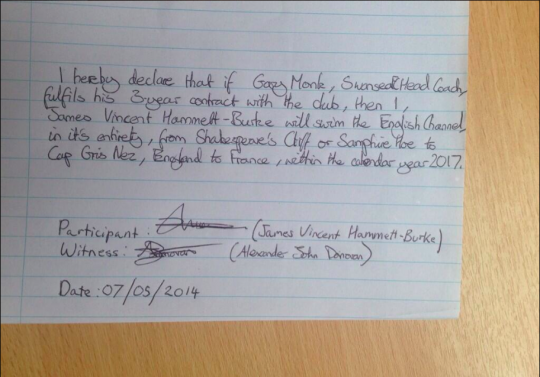 I hereby declare that if Gary Monk, Swansea Head Coach,
fulfils his 3 year contract with the club, then I,
James Vincent Hammett-Burke will swim the English Channel
in it's entirety, from Shakespeare's Cliff or Samphire Hoe to
Cap Gris Nez, England to France, within the calendar year 2017.
Participant: (James Vincent Hammett-Burke)
Witness: Donovan (Alexander John Donovan)
Date: 07/05/2014